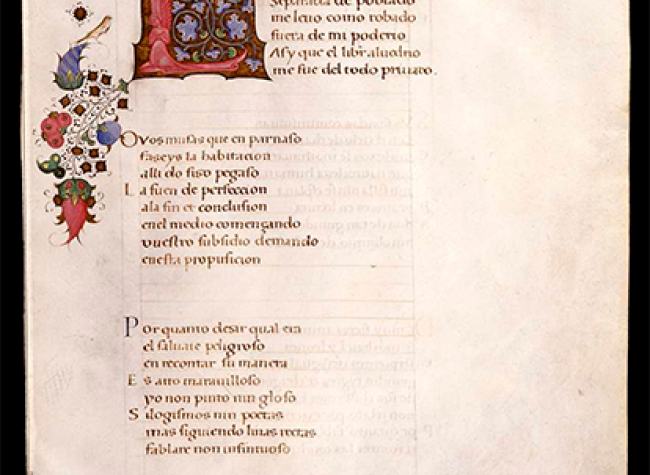 Separada de poblado
me leuo como robado
fuera de mi poderio
Asy que el libre aluedrio
me fue del todo priuato.
O vos musas que en parnaso
faseys la habitacion
alli do fiso pegaso
La fuen de perfeccion
ala fin et conclusion
enel medio començando
vuestro subsidio demando
enesta propusicion
Por quanto desir qual era
el saluaie peligroso
en recontar su manera
Es atto marauilloso
yo non pinto nin gloso
Silogismos nin poetas
mas siguiendo linas rectas
fablare non infintuoso